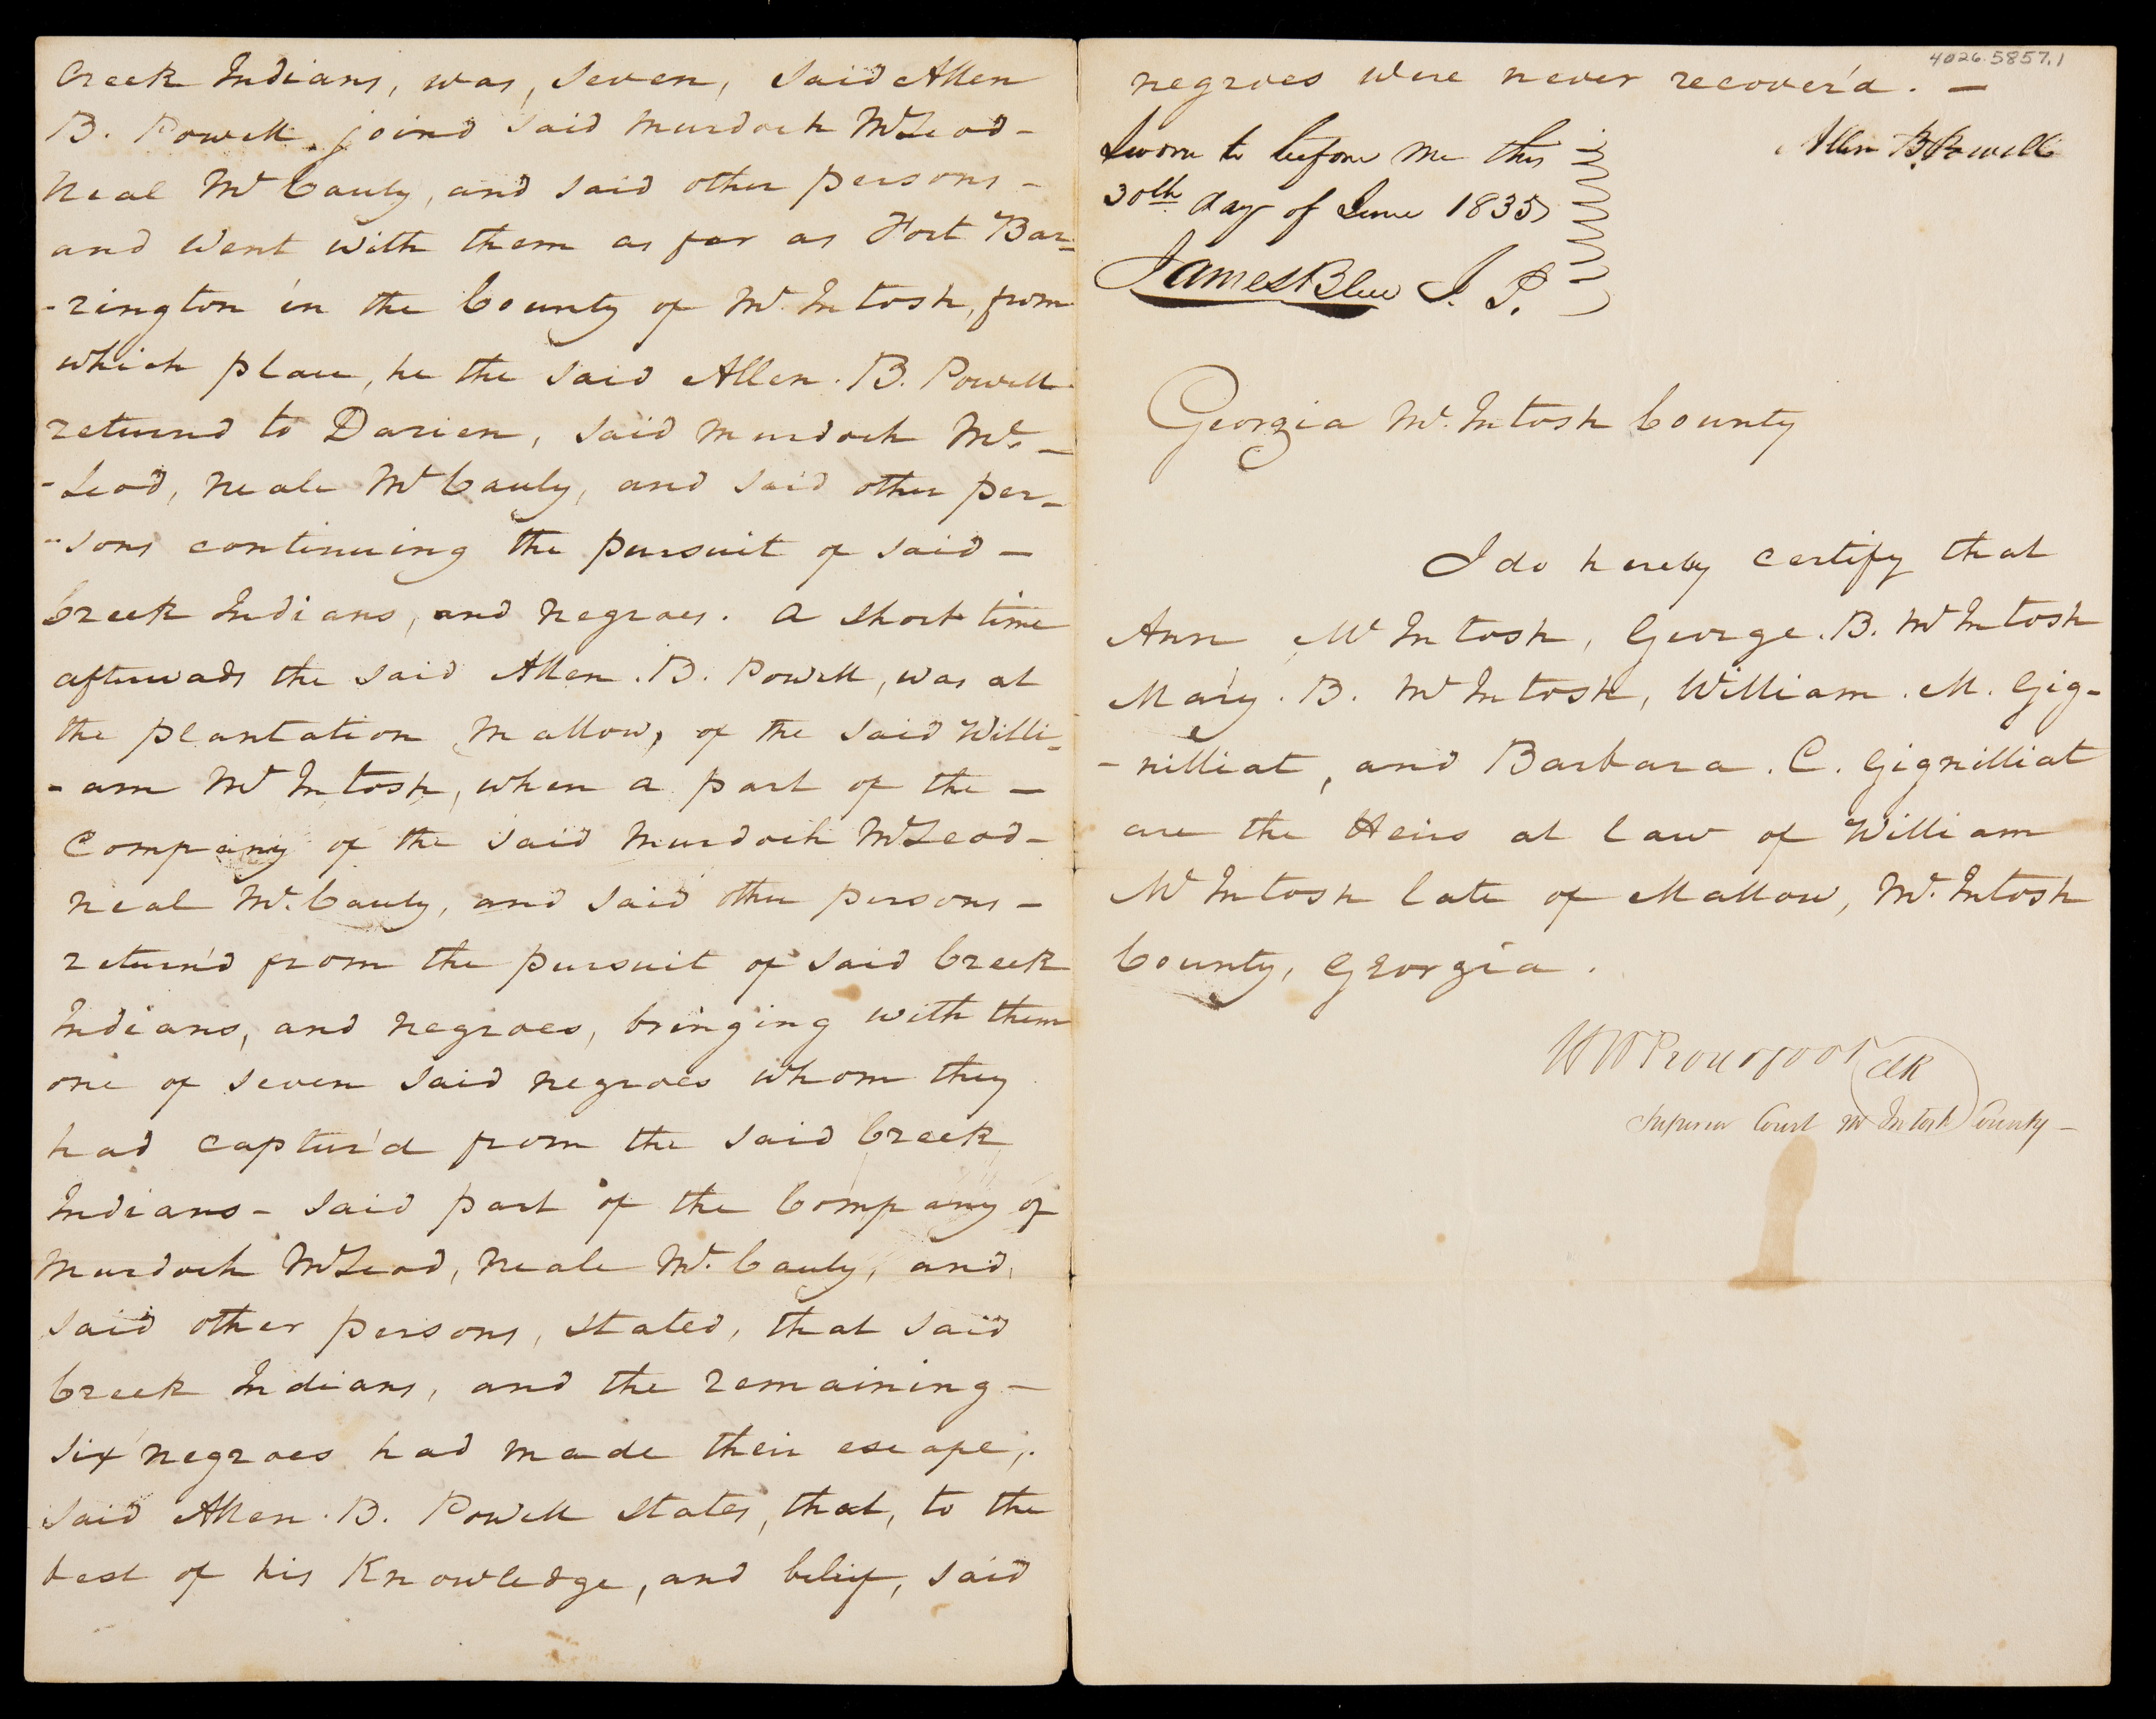 Creek Indians, was, seven, said Allen
B. Powell, joind said Murdock McLeod-
Neal McCauly, and said other persons-
and went with them as far as Fort Bar=
-rington in the County of McIntosh, from
which place, he the said Allen. B. Powell
returnd to Darien, said Murdock Mc-
-Leod, Neale McCauly, and said other per-
-sons continuing the pursuit of said-
Creek Indians, and negroes. A short time
afterwads the said Allen. B. Powell, was at
the plantation Mallow, of the said Willi=
-am McIntosh, when a part of the-
Company of the said Murdock McLeod-
Neal Mc.Cauly, and said other persons-
return'd from the pursuit of said Creek
Indians, and negroes, bringing with them
one of seven said negroes whom they
had captur'd from the said Creek
Indians- said part of the Company of
Murdock McLeod, Neale Mc.Cauly, and
said other persons, stated, that said
Creek Indians, and the remaining-
six negroes had made their escape,.
said Allen. B. Powell states, that, to the
best of his Knowledge, and belief, said
4026.5857.1
negroes were never recover'd. -
Allen B. Powell
Sworn to before me this
30th day of June 1835
James Blue J. P.
Georgia Mc.Intosh County
I do hereby certify that
Ann McIntosh, George. B. McIntosh
Mary. B. McIntosh, William. M. Gig-
-nilliat, and Barbara. C. Gignilliat
are the Heirs at law of William
McIntosh late of Mallow, Mc.Intosh
County, Georgia.
W W Proudfoot Clk
Superior Court McIntosh County-